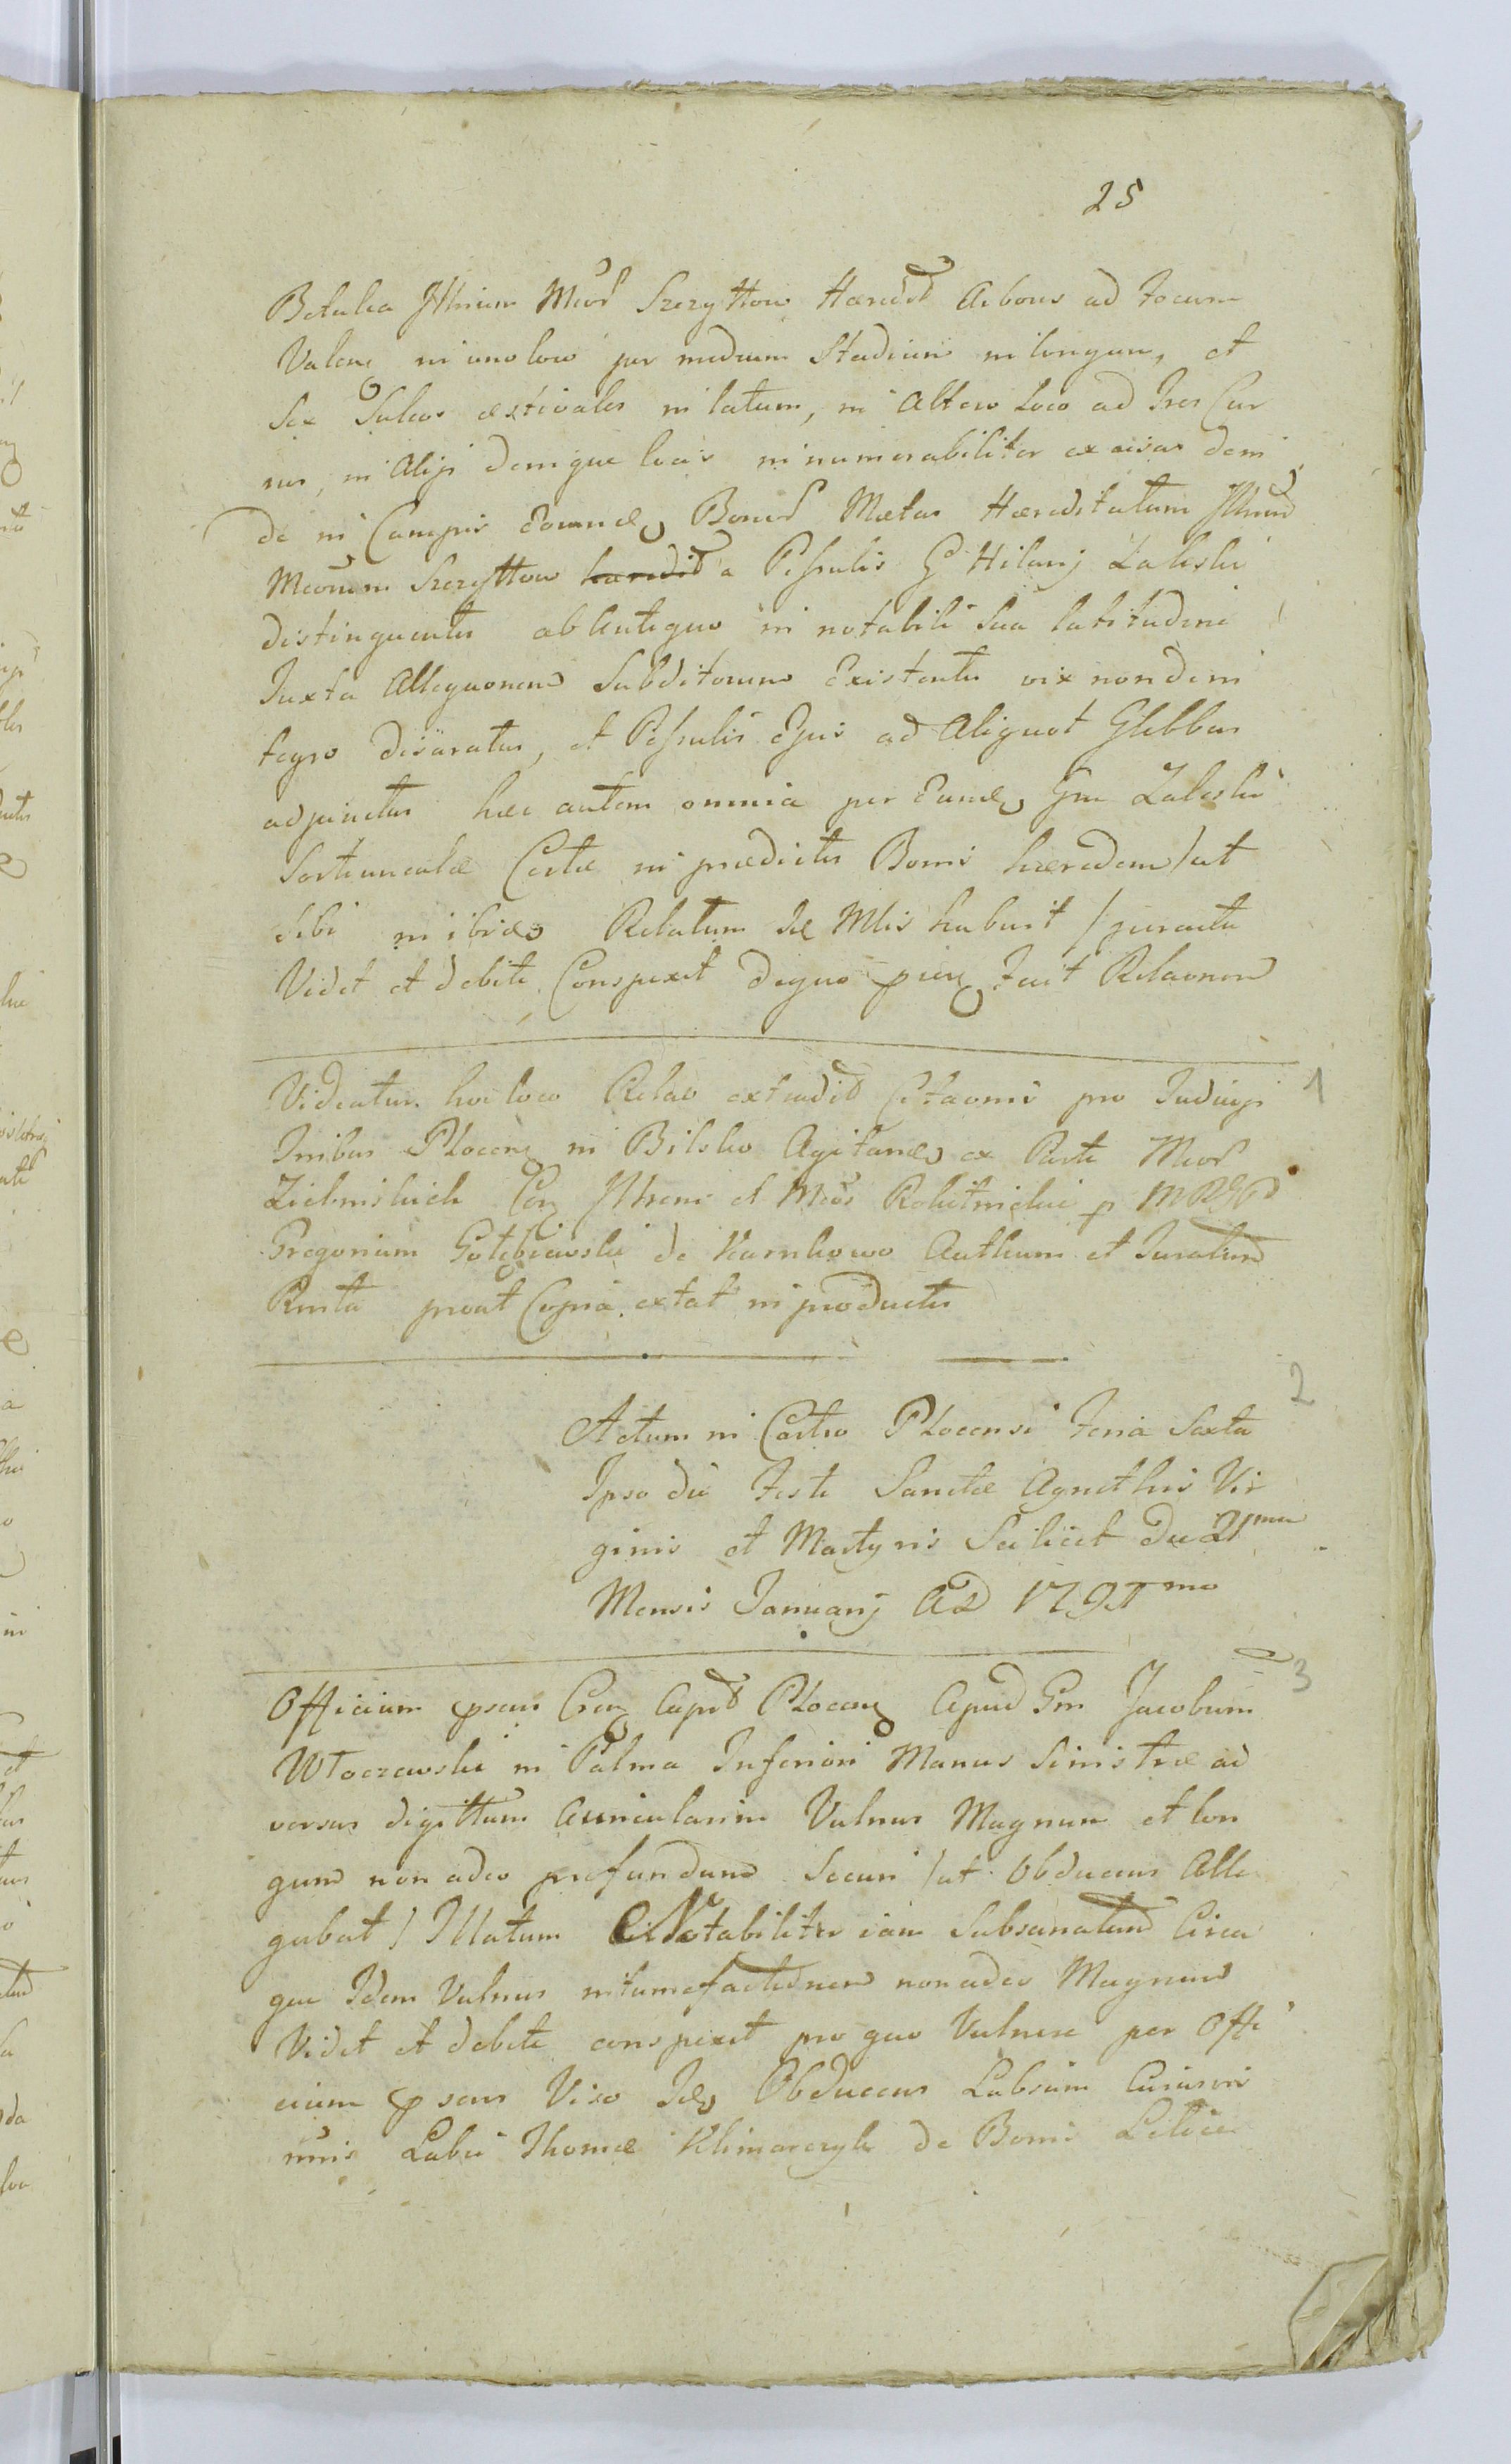 25
Betulia Illrium Mcor Szczyttow Haered Arbores ad focum
Valen in uno loco per medium Stadium in longum, et
Sex Sulcos aestivales in latum, in Altero Loco ad Tres Cur
rus, in Alijs denique locis innumerabiliter excisas dein
de in Campis Bonor Metas Haereditatum Illrium
Mcorum Szczyttow a Pessulis G Hilarij Zaleski
distinguentes ab Antiquo in notabili sua latitudine
Juxta Allegaonem Subditorum Existentes vix non dein
tegro disaratas, et Pessulis Ejus ad Aliquot Glebbas
adjunctas haec autem omnia per Gm Zaleski
Sortiunculae Certae in praedictis Bonis haeredem / ut
sibi Relatum se Mlis habuit / peracta
Vidit et debite Conspexit de quo fecit Relaonem
Videatur hoc loco Relao Citaonis pro Judicijs
Tribus Plocen in Bilsko ex Parte Mcor
Zielinskich Con et Robitnickie p
Gregorium Gołębiewski de Karnkowo Authum et Juratum
prout Copia extat in productis
1
2
Actum in Castro Plocensi Feria Sexta
Ipso die Festi Sanctae Agnethis Vir
ginis et Martyris Scilicet die 21ma
Mensis Januarij AD 1791mo
3
Officium psens Cren Capit Plocen Apud Gm Jacobum
Włoczewski in Palma Inferiori Manus Sinistrae ad
versus digittum Auricularim Vulnus Magnum et lon
gum non adeo profundum Securi / ut Obducens Alle
gabat / Illatum Notabiliter iam Subsanatum Circa
que Idem Vulnus intumefactionem non adeo Magnam
Vidit et debite conspexit pro quo Vulnere per Offi
cium psens Viso Obducens
Thomae Klimarczyk de Bonis